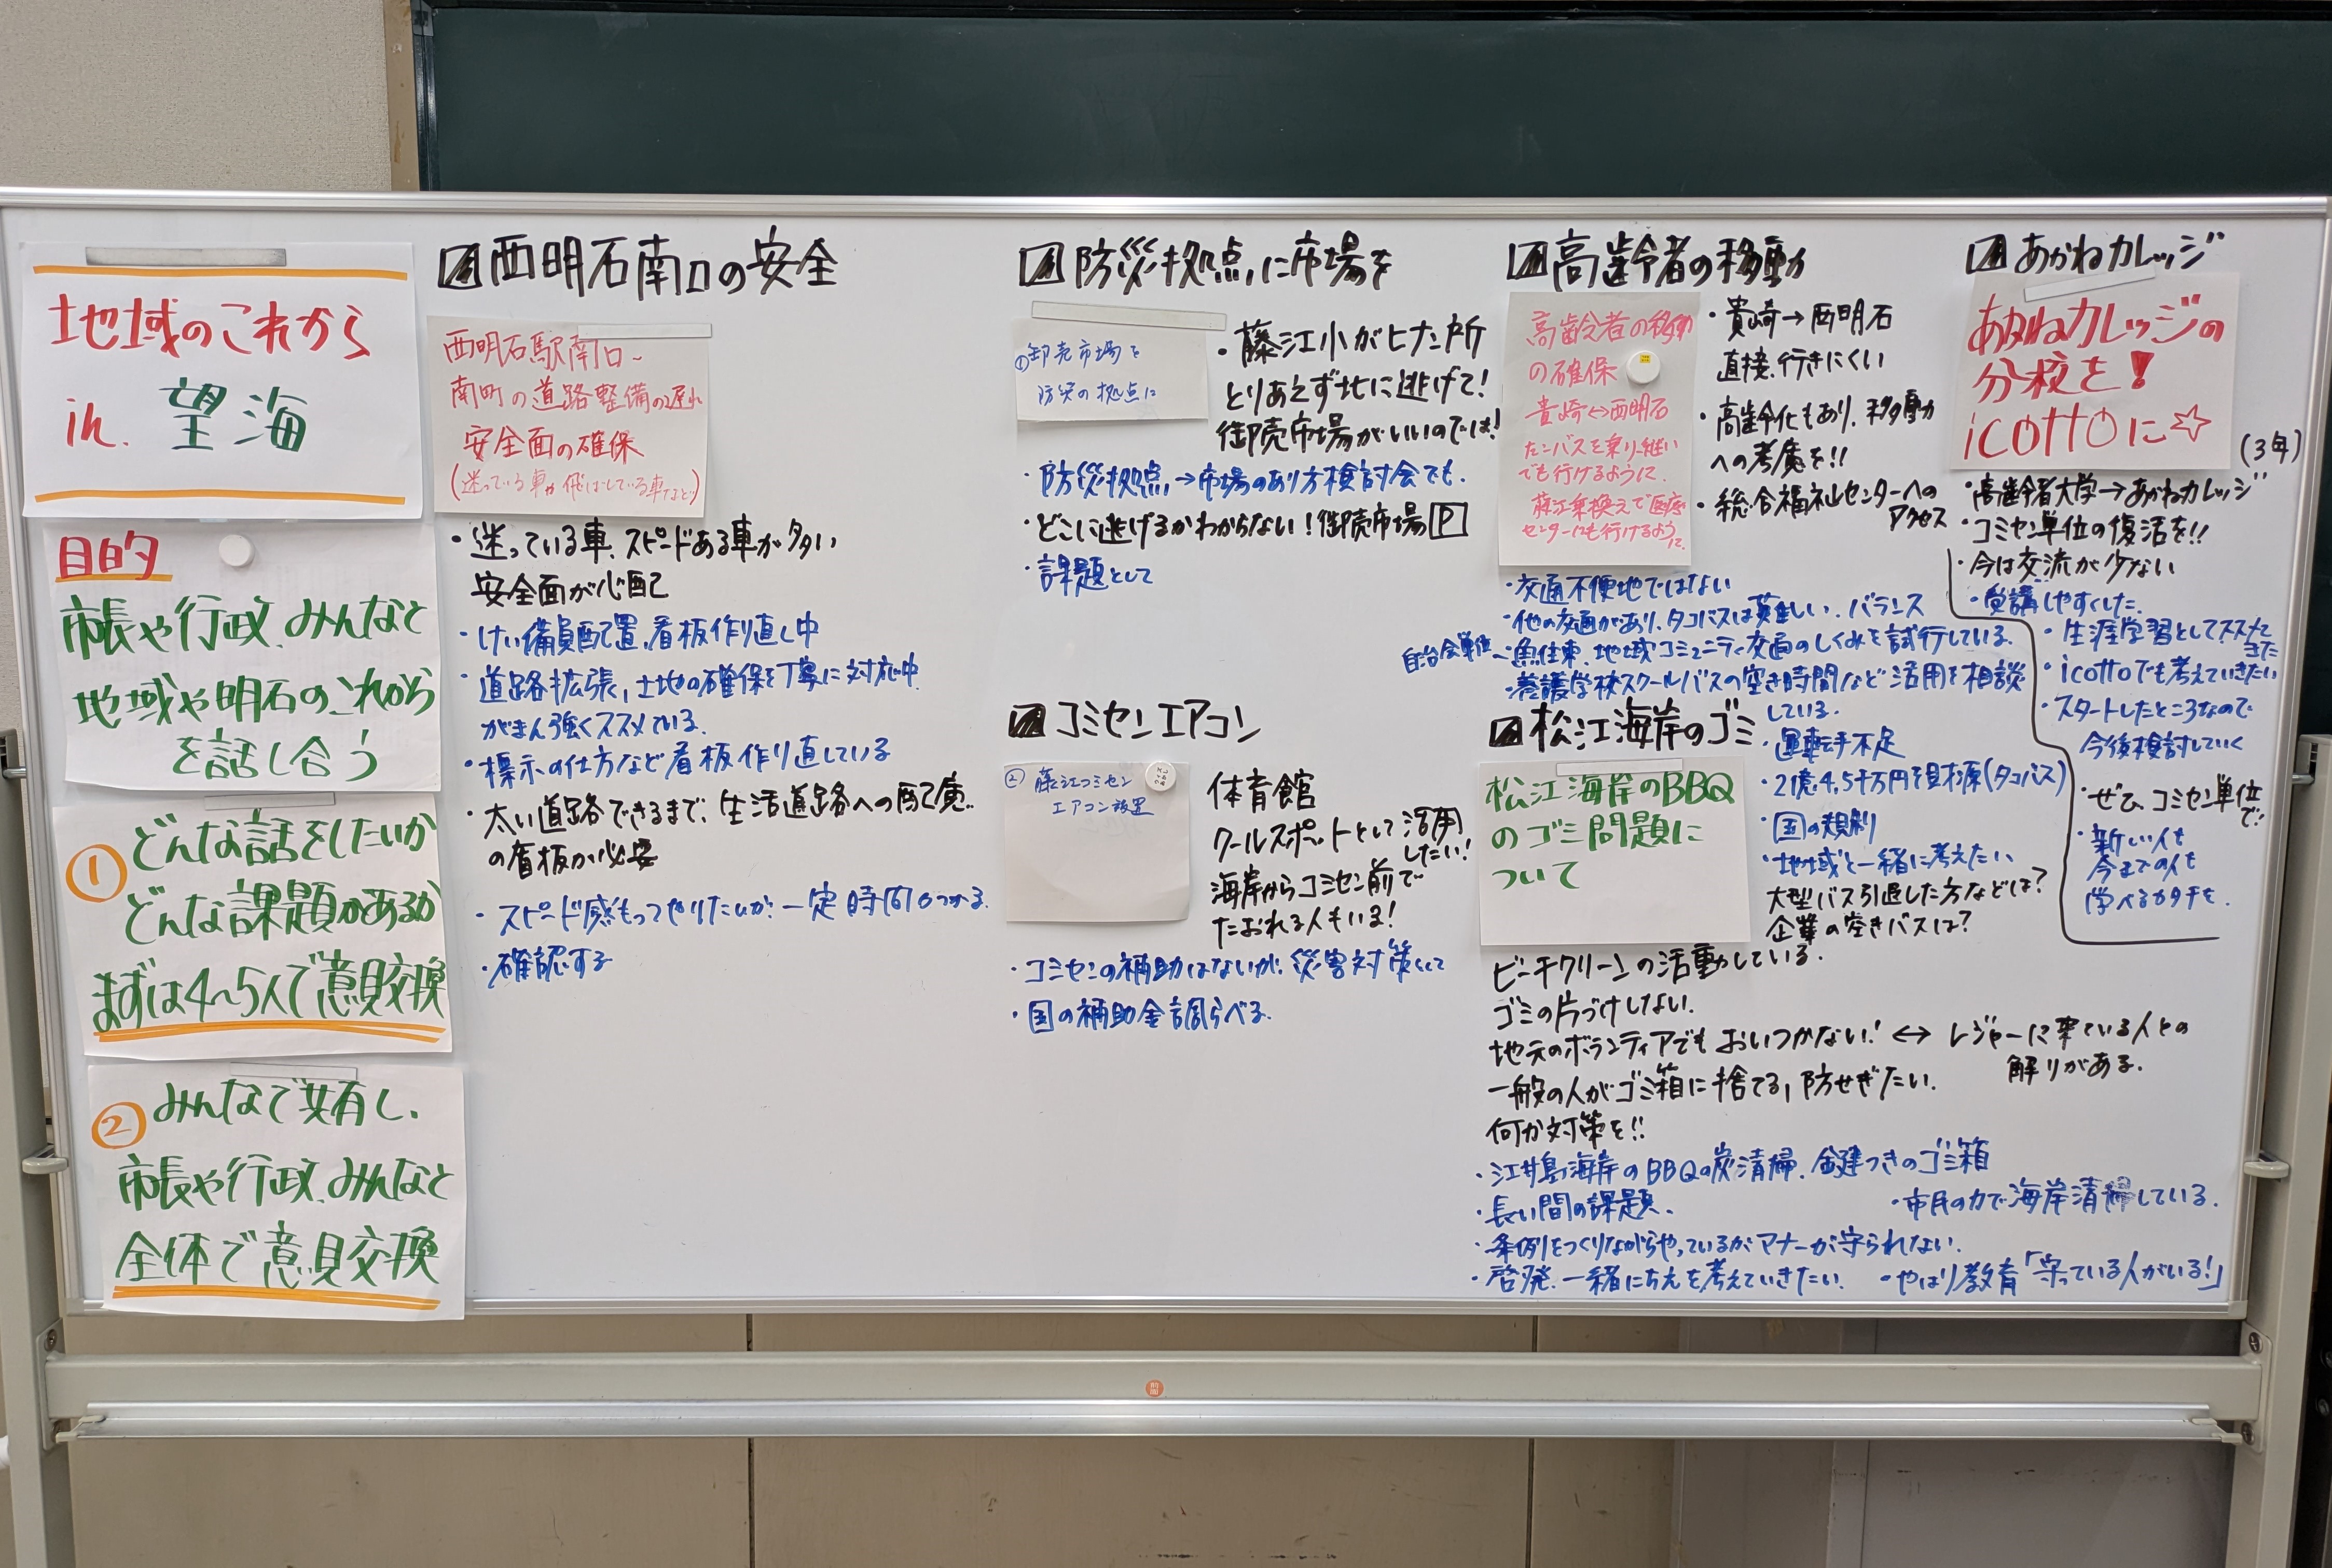 地域のこれから
in. 望海
目的
市長や行政、みんなと
地域や明石のこれから
を話し合う
① どんな話をしたいか
どんな課題があるか
まずは4〜5人で意見交換
② みんなで共有し、
市長や行政、みんなと
全体で意見交換
西明石南口の安全
西明石駅南口〜
南町の道路整備の遅れ
安全面の確保
(迷っている車や飛ばしている車など)
・迷っている車、スピードある車が多い
安全面が心配
・けい備員配置、看板作り直し中
・道路拡張、土地の確保を丁寧に対応中
がまん強くススメている。
・標示の仕方など看板作り直している
・太い道路できるまで、生活道路への配慮..
の看板が必要
・スピード感もってやりたいが、一定時間かかる。
・確認する
防災拠点に市場を
①卸売市場を
防災の拠点に
・藤江小がヒナン所
とりあえず北に逃げて!
御売市場がいいのでは!
・防災拠点→市場のあり方検討会でも.
・どこに逃げるかわからない!御売市場P
・課題として
コミセンエアコン
② 藤江コミセン
エアコン設置
体育館
クールスポットとして活用
したい!
海岸からコミセン前で
たおれる人もいる!
・コミセンの補助はないが、災害対策として
・国の補助金調らべる.
高齢者の移動
高齢者の移動
の確保
貴崎↔西明石
たこバスを乗り継い
でも行けるように.
藤江乗換えで医療
センターにも行けるよう
に.
・貴崎→西明石
直接、行きにくい
・高齢化もあり、移動
への考慮を!!
・総合福祉センターへの
アクセス
・交通不便地ではない
・他の交通があり、タコバスは難しい、バランス
自治会単位〜魚住東、地域コミュニティ交通のしくみを試行している.
・養護学校スクールバスの空き時間など活用を相談
している.
・運転手不足
・2億4,5千万円を財源(タコバス)
・国の規制
・地域と一緒に考えたい
大型バス引退した方などは?
企業の空きバスは?
松江海岸のゴミ
松江海岸のBBQ
のゴミ問題に
ついて
ビーチクリーンの活動している.
ゴミの片づけしない.
地元のボランティアでもおいつかない! ↔ レジャーに来ている人との
解りがある.
一般の人がゴミ箱に捨てる、防せぎたい.
何か対策を!!
・江井島海岸のBBQの炭清掃、鍵つきのゴミ箱
・長い間の課題、
・市民の力で海岸清掃している.
・条例をつくりながらやっているがマナーが守られない.
・啓発、一緒にちえを考えていきたい.
・やはり教育「守っている人がいる!」
あかねカレッジ
あかねカレッジの
分校を!
icottoに☆
(3年)
・高齢者大学→あかねカレッジ
・コミセン単位の復活を!!
・今は交流が少ない
・受講しやすくした.
・生涯学習としてススメて
きた
・icottoでも考えていきたい
・スタートしたところなので
今後検討していく
・ぜひコミセン単位
で!
・新しい人も
今までの人も
学べるカタチを.